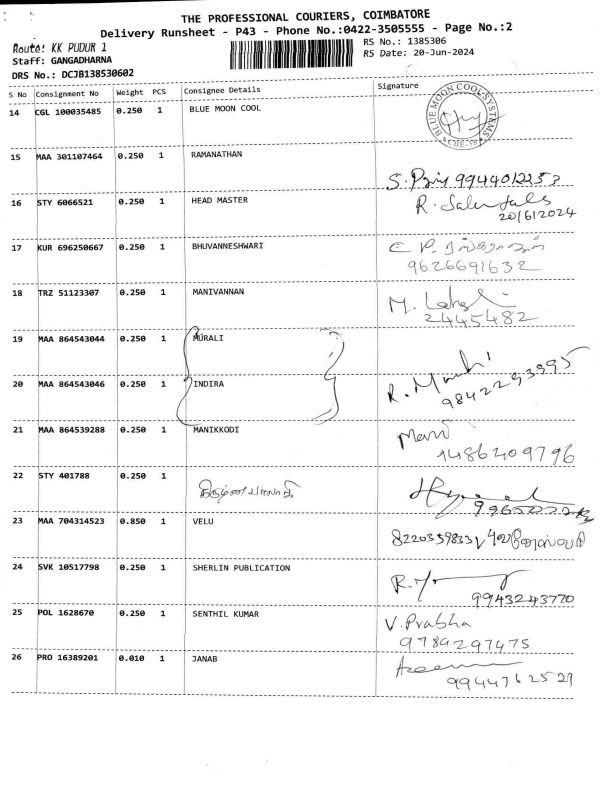 THE PROFESSIONAL COURIERS, COIMBATORE
Delivery Runsheet - P43 - Phone No.:0422-3505555 - Page No.:2
Route: KK PUDUR 1
RS No.: 1385306
Staff: GANGADHARNA
RS Date: 20-Jun-2024
DRS No.: DCJB138530602
S No Consignment No Weight PCS Consignee Details Signature
14 CGL 100035485 0.250 1 BLUE MOON COOL
BLUE MOON COOL SYSTEMS
15 MAA 301107464 0.250 1 RAMANATHAN
S. 9944012253
16 STY 6066521 0.250 1 HEAD MASTER
R.
20/6/2024
17 KUR 696250667 0.250 1 BHUVANNESHWARI
9626691632
18 TRZ 51123307 0.250 1 MANIVANNAN
M.
2445482
19 MAA 864543044 0.250 1 MURALI
20 MAA 864543046 0.250 1 INDIRA
R.
9842293995
21 MAA 864539288 0.250 1 MANIKKODI
Mani
9486409796
22 STY 401788 0.250 1
23 MAA 704314523 0.850 1 VELU
8220359833
24 SVK 10517798 0.250 1 SHERLIN PUBLICATION
R.
9943243770
25 POL 1628670 0.250 1 SENTHIL KUMAR
V. Prabha
9789297475
26 PRO 16389201 0.010 1 JANAB
Azeem
9944762521